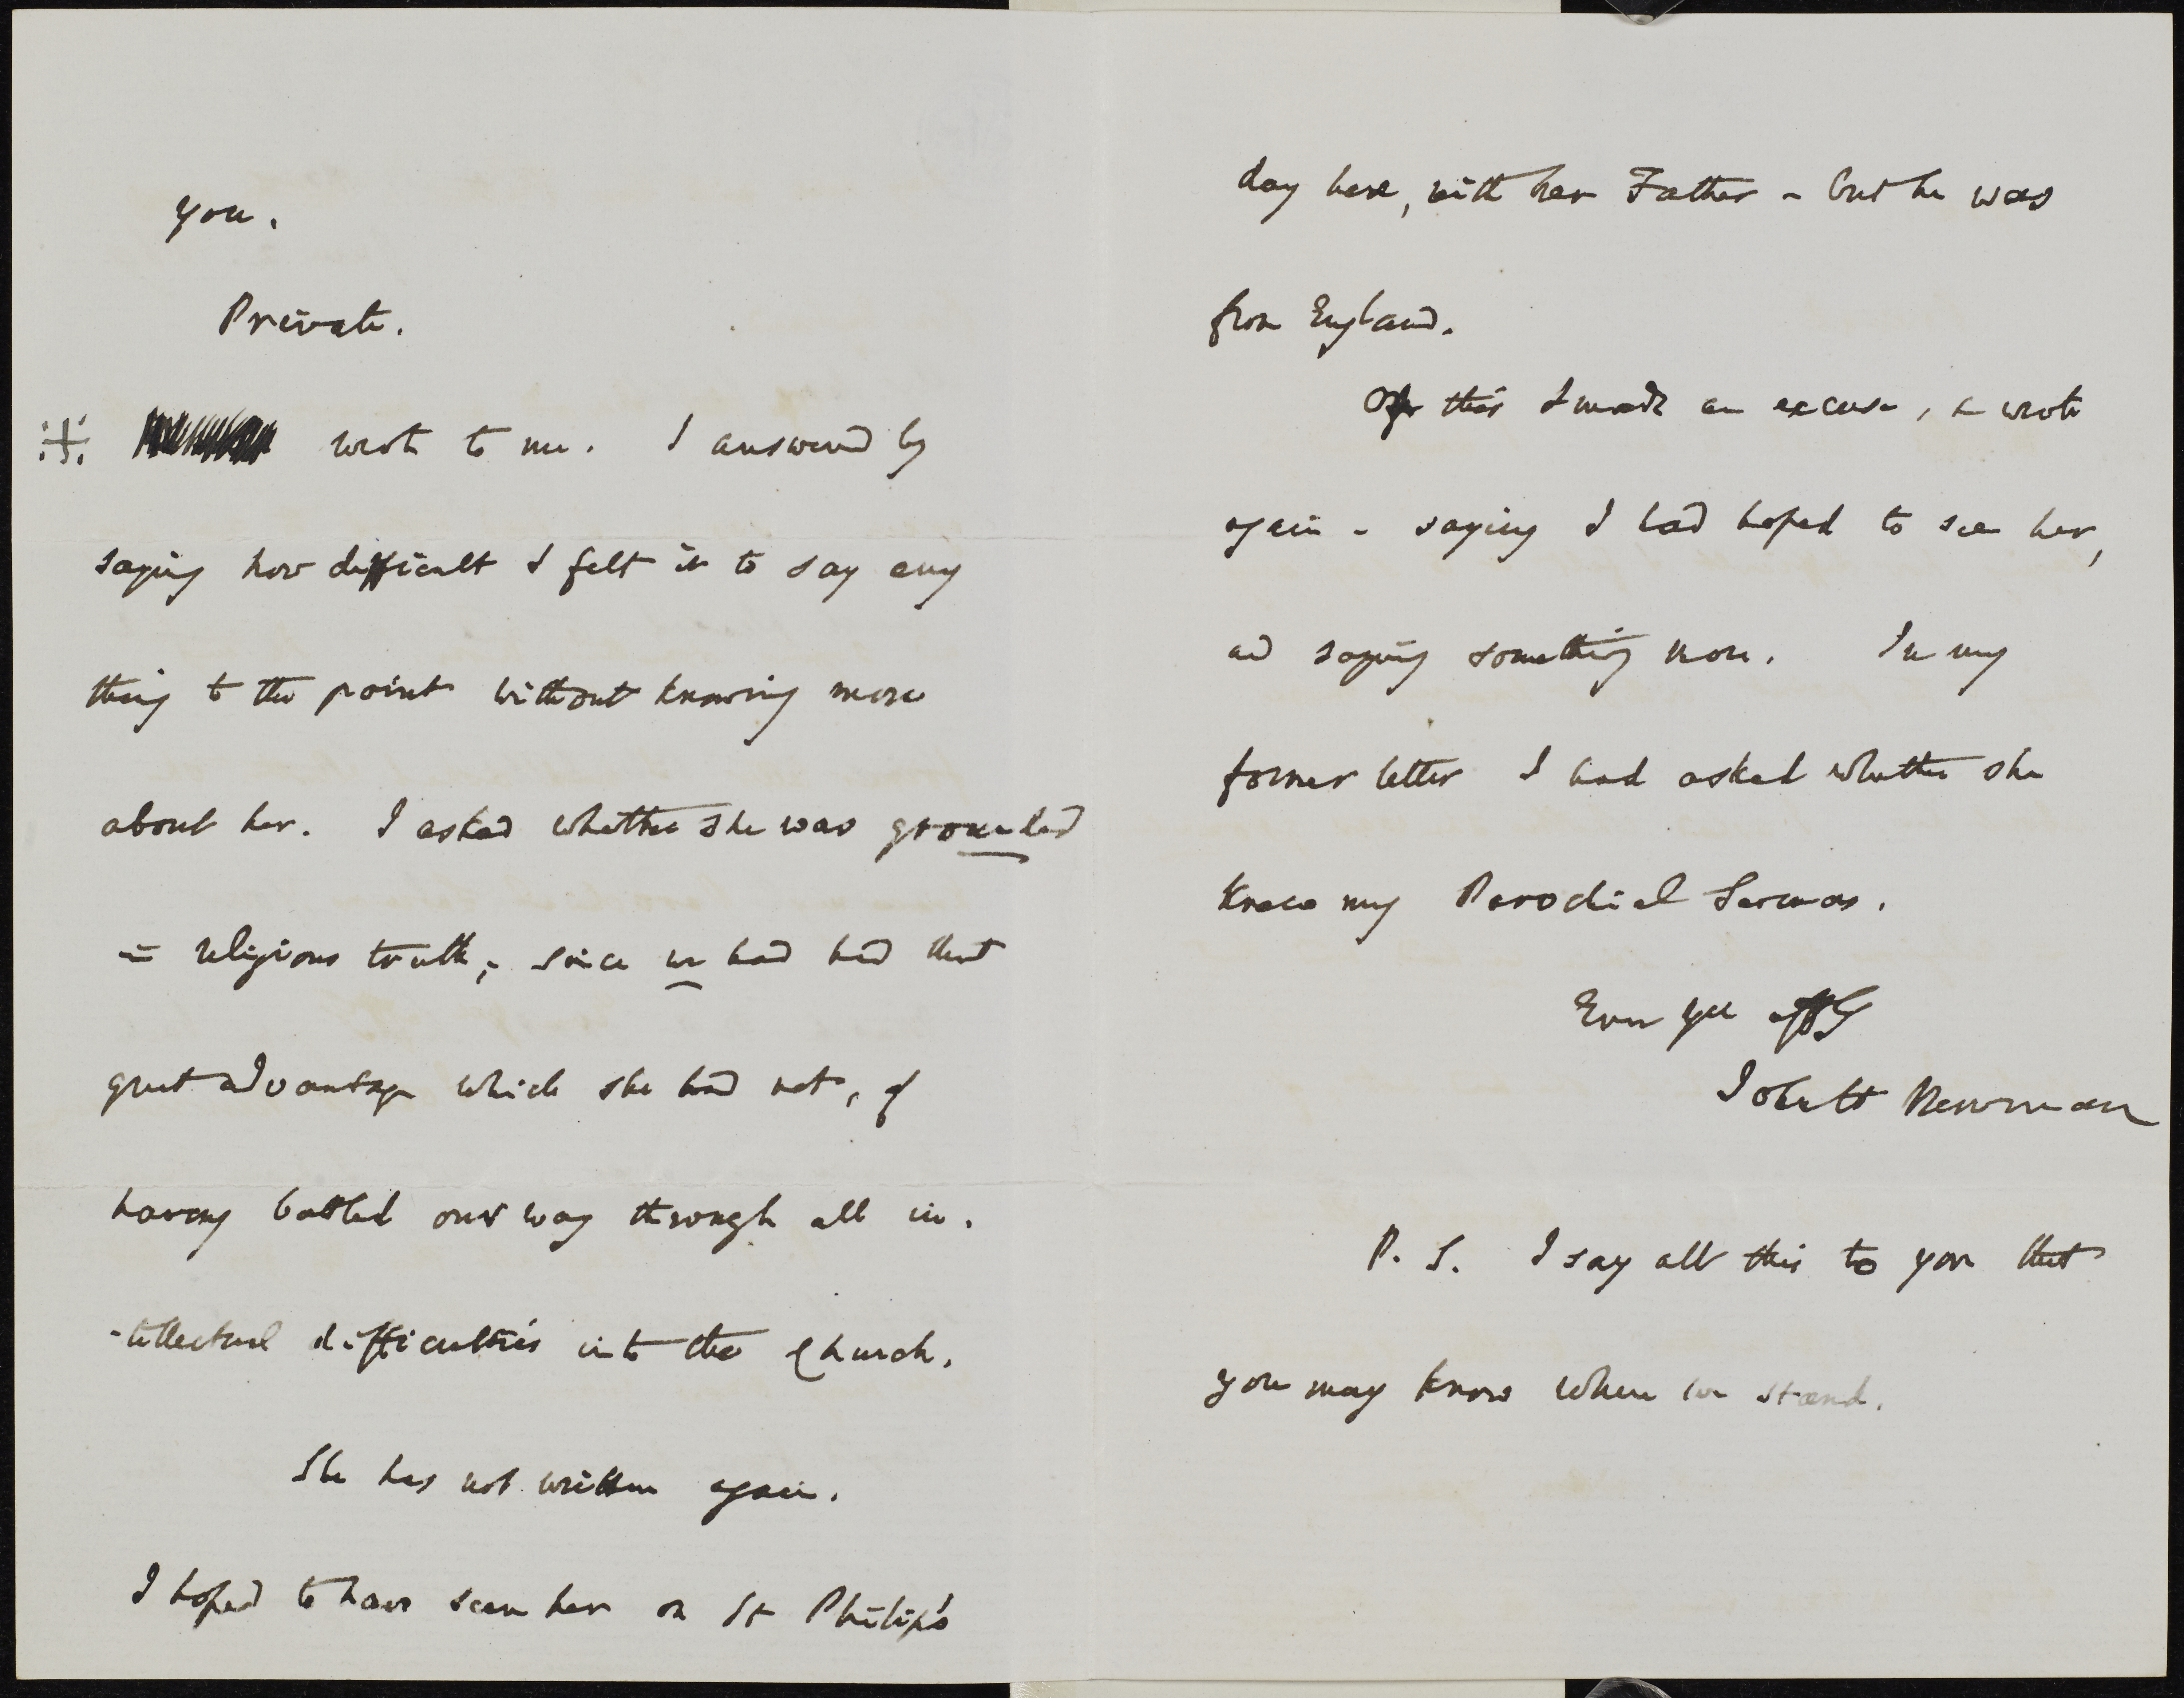 you.
Private.
wrote to me. I answered by
saying how difficult I felt it to say any
thing to the point without knowing more
about her. I asked whether she was grounded
in religious truth, since we had had that
great advantage which she had not, of
having battled our way through all in-
-tellectual difficulties into the Church.
She has not written again.
I hoped to have seen her on St Philip's
day here, with her Father - but he was
from England.
Of this I made an excuse, & wrote
again - saying I had hoped to see her,
and saying something more. In my
former letter I had asked whether she
knew my Parochial Sermons.
Ever Yrs affly
John H Newman
P. S. I say all this to you that
you may know where we stand.